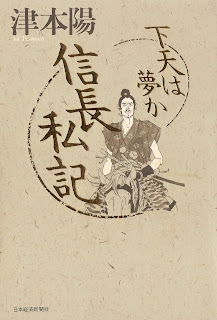 津本陽
下天は
夢か
信長
私記
日本経済新聞社